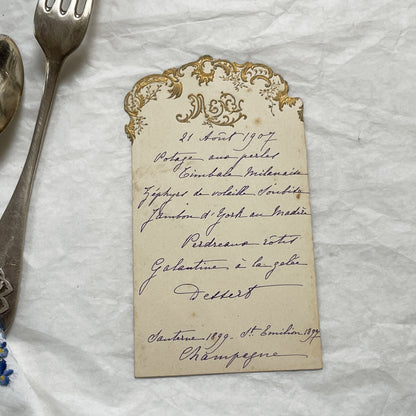 21 Août 1907
Potage aux perles
Timbale Milanaise
Zéphyrs de volaille Soubise
Jambon d'York au Madère
Perdreaux rôtis
Galantine à la gelée
Dessert
Sauterne 1899 - St Emilion 1897
Champagne